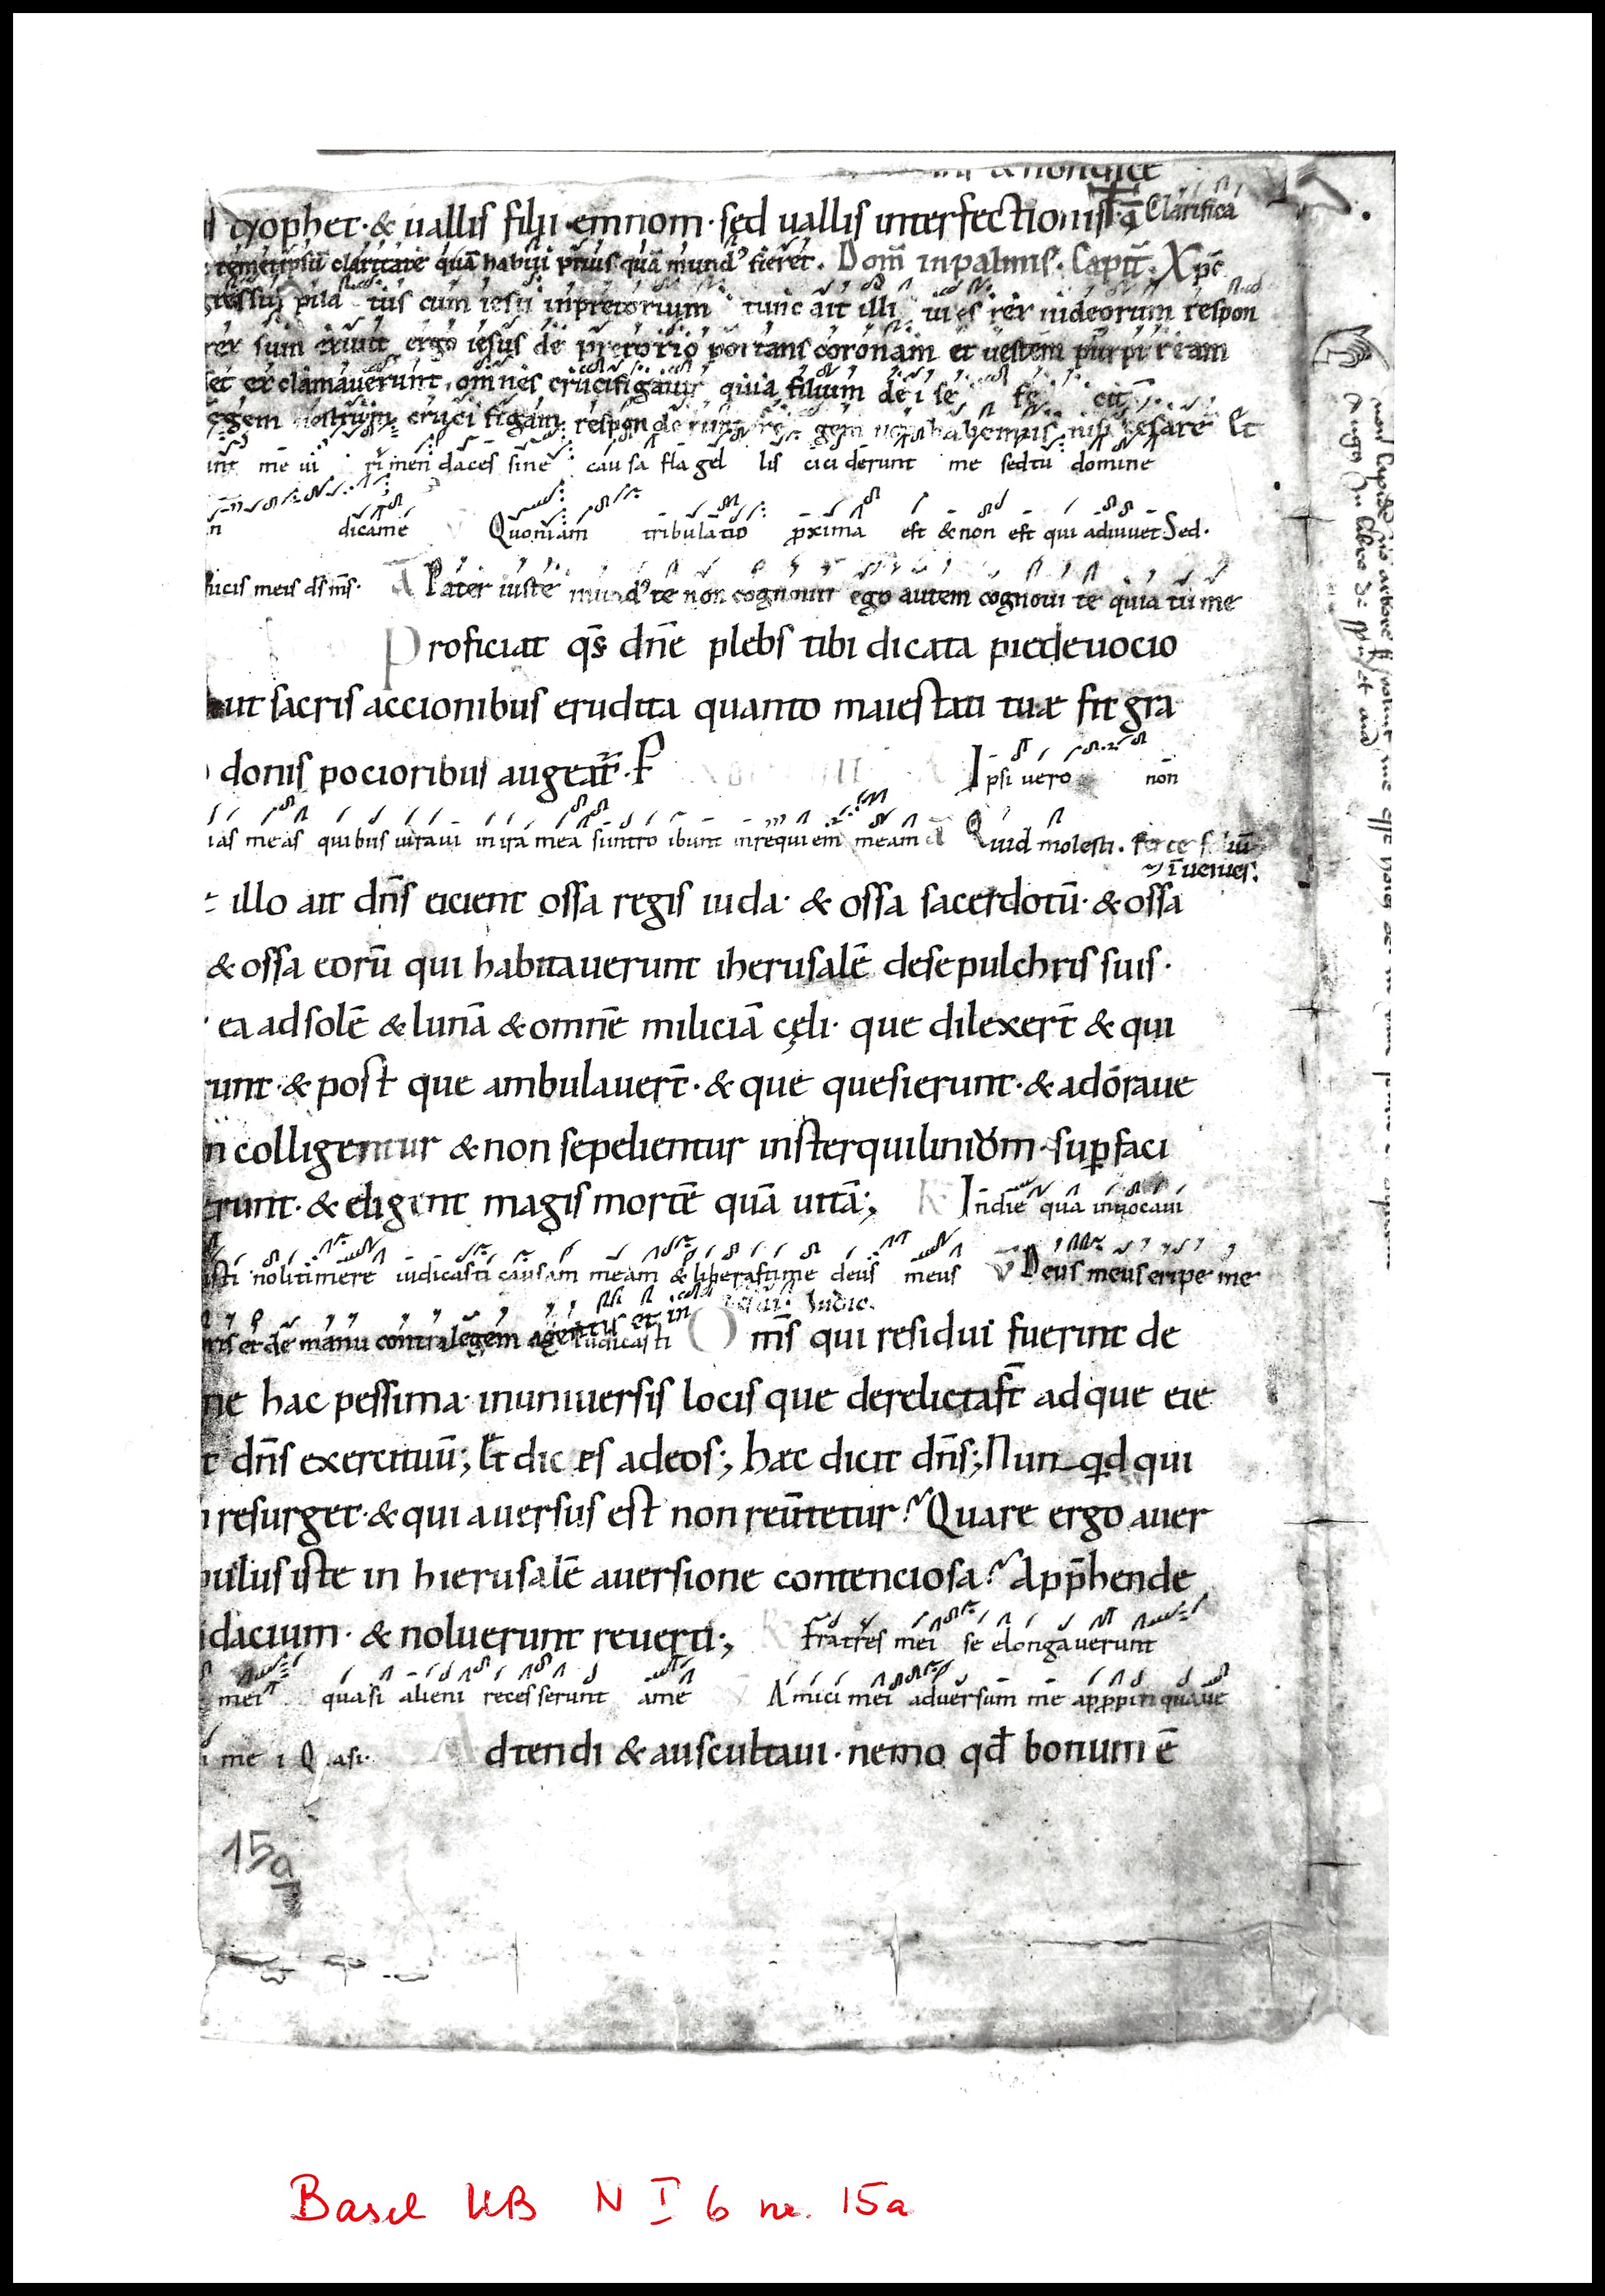 & non dice
tophet · & uallis filii emnom · sed uallis interfectionis · a Clarifica
temetipsū claritate quā habui prius quā mund' fieret . Domī in palmis . Capit̄ . Xpc̄
gressus pila tus cum iesu in pretorium tunc ait illi tu es rex iudeorum respon
rex sum exiuit ergo iesus de pretorio portans coronam et uestem purpuream
et exclamauerunt omnes crucifigatur quia filium dei se fe cit
egem uestrum cruci figam respon derunt re gem non habemus nisi cesare Et
unt me ui ri men daces sine cau sa fla gel lis ciciderunt me sed tu domine
dica me Quoniam tribulatio pxima est & non est qui adiuuet Sed .
micis meis ds ms . A Pater iuste mund' te non cognouit ego autem cognoui te quia tu me
Proficiat qs̄ dn̄e plebs tibi dicata pie deuocio
ut sacris accionibus erudita quanto maiestati tuæ fit gra
donis pocioribus augeat̄ . P Ipsi uero non
ias meas quibus iuraui in ira mea si intro ibunt in requiem meam a Quid molesti .
inuenies .
illo ait dn̄s eicient ossa regis iuda · & ossa sacerdotū · & ossa
& ossa eorū qui habitauerunt iherusalē de sepulchris suis ·
ea ad solē & lunā & omnē miliciā cęli · que dilexert̄ & qui
runt · & post que ambulauert̄ · & que quesierunt · & adoraue
n colligentur & non sepelientur in sterquilinium · sup faci
erunt · & eligent magis mortē quā uitā ; R In die qua inuocaui
isti noli timere iudicasti causam meam & liberasti me deus meus V Deus meus eripe me
ris et de manu contra legem agentis et in iqui . Iudic .
iudicasti Oms̄ qui residui fuerint de
ne hac pessima · in uniuersis locis que derelicta st̄ ad que eie
t dn̄s exercituū ; Et dices ad eos ; hæc dicit dn̄s ; Nunqd qui
n resurget · & qui auersus est non reūtetur ? Quare ergo auer
pulus iste in hierusalē auersione contenciosa ? App̄hende
dacium · & noluerunt reuerti ; R Fratres mei se elongauerunt
mei quasi alieni recesserunt a me V Amici mei aduersum me appropinquaue
me i Quasi · Adtendi & auscultaui · nemo qđ bonum ē
15a
Basel UB N I 6 nr. 15a